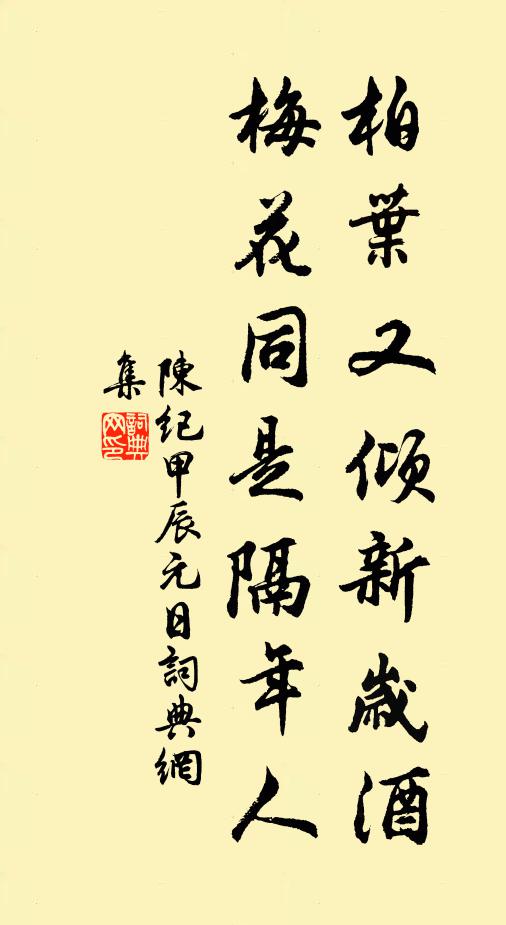 柏葉又傾新歲酒
梅花同是隔年人
陳紀甲辰元日詞典網
集
詞典
网印